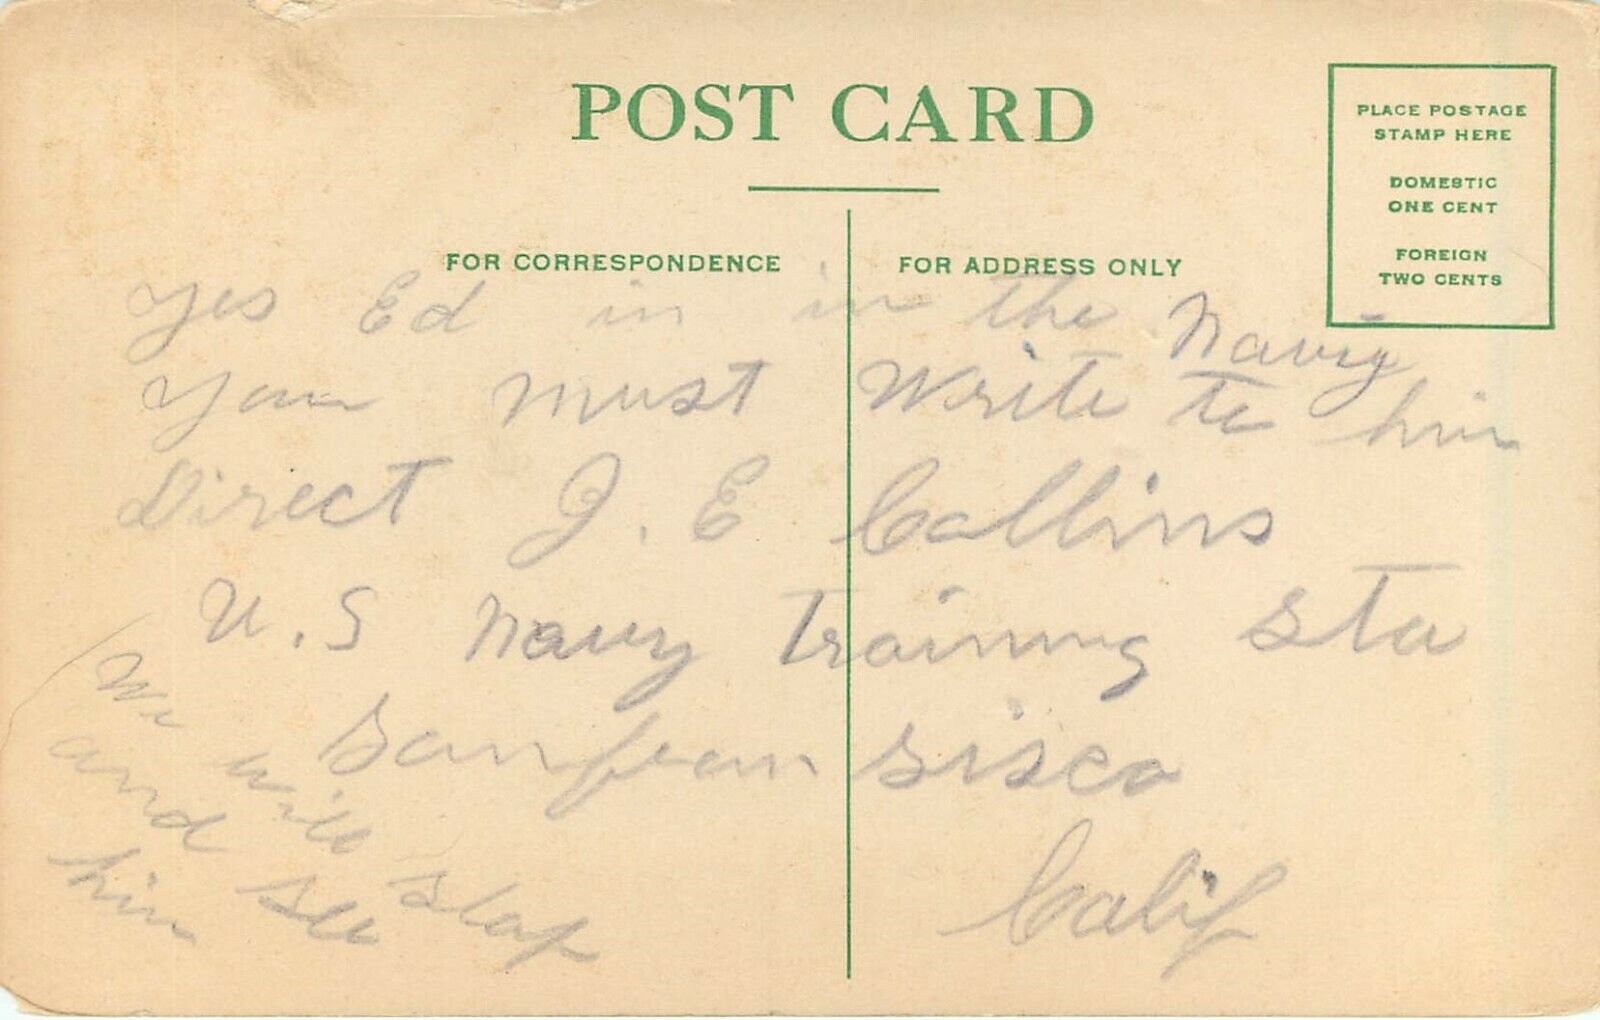 POST CARD
PLACE POSTAGE
STAMP HERE
DOMESTIC
ONE CENT
FOREIGN
TWO CENTS
FOR CORRESPONDENCE
FOR ADDRESS ONLY
Yes Ed in in the Navy
You must write to him
Direct J. E Collins
U.S Navy Training Sta
Sanfran sisco
Calif
We will stop
and see
him